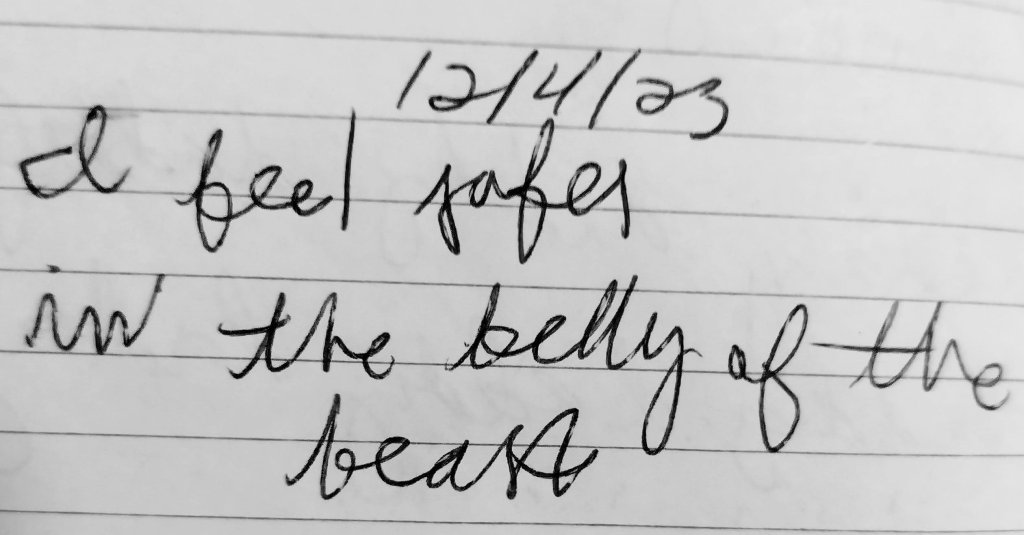 12/4/23
I feel safer
in the belly of the
beast